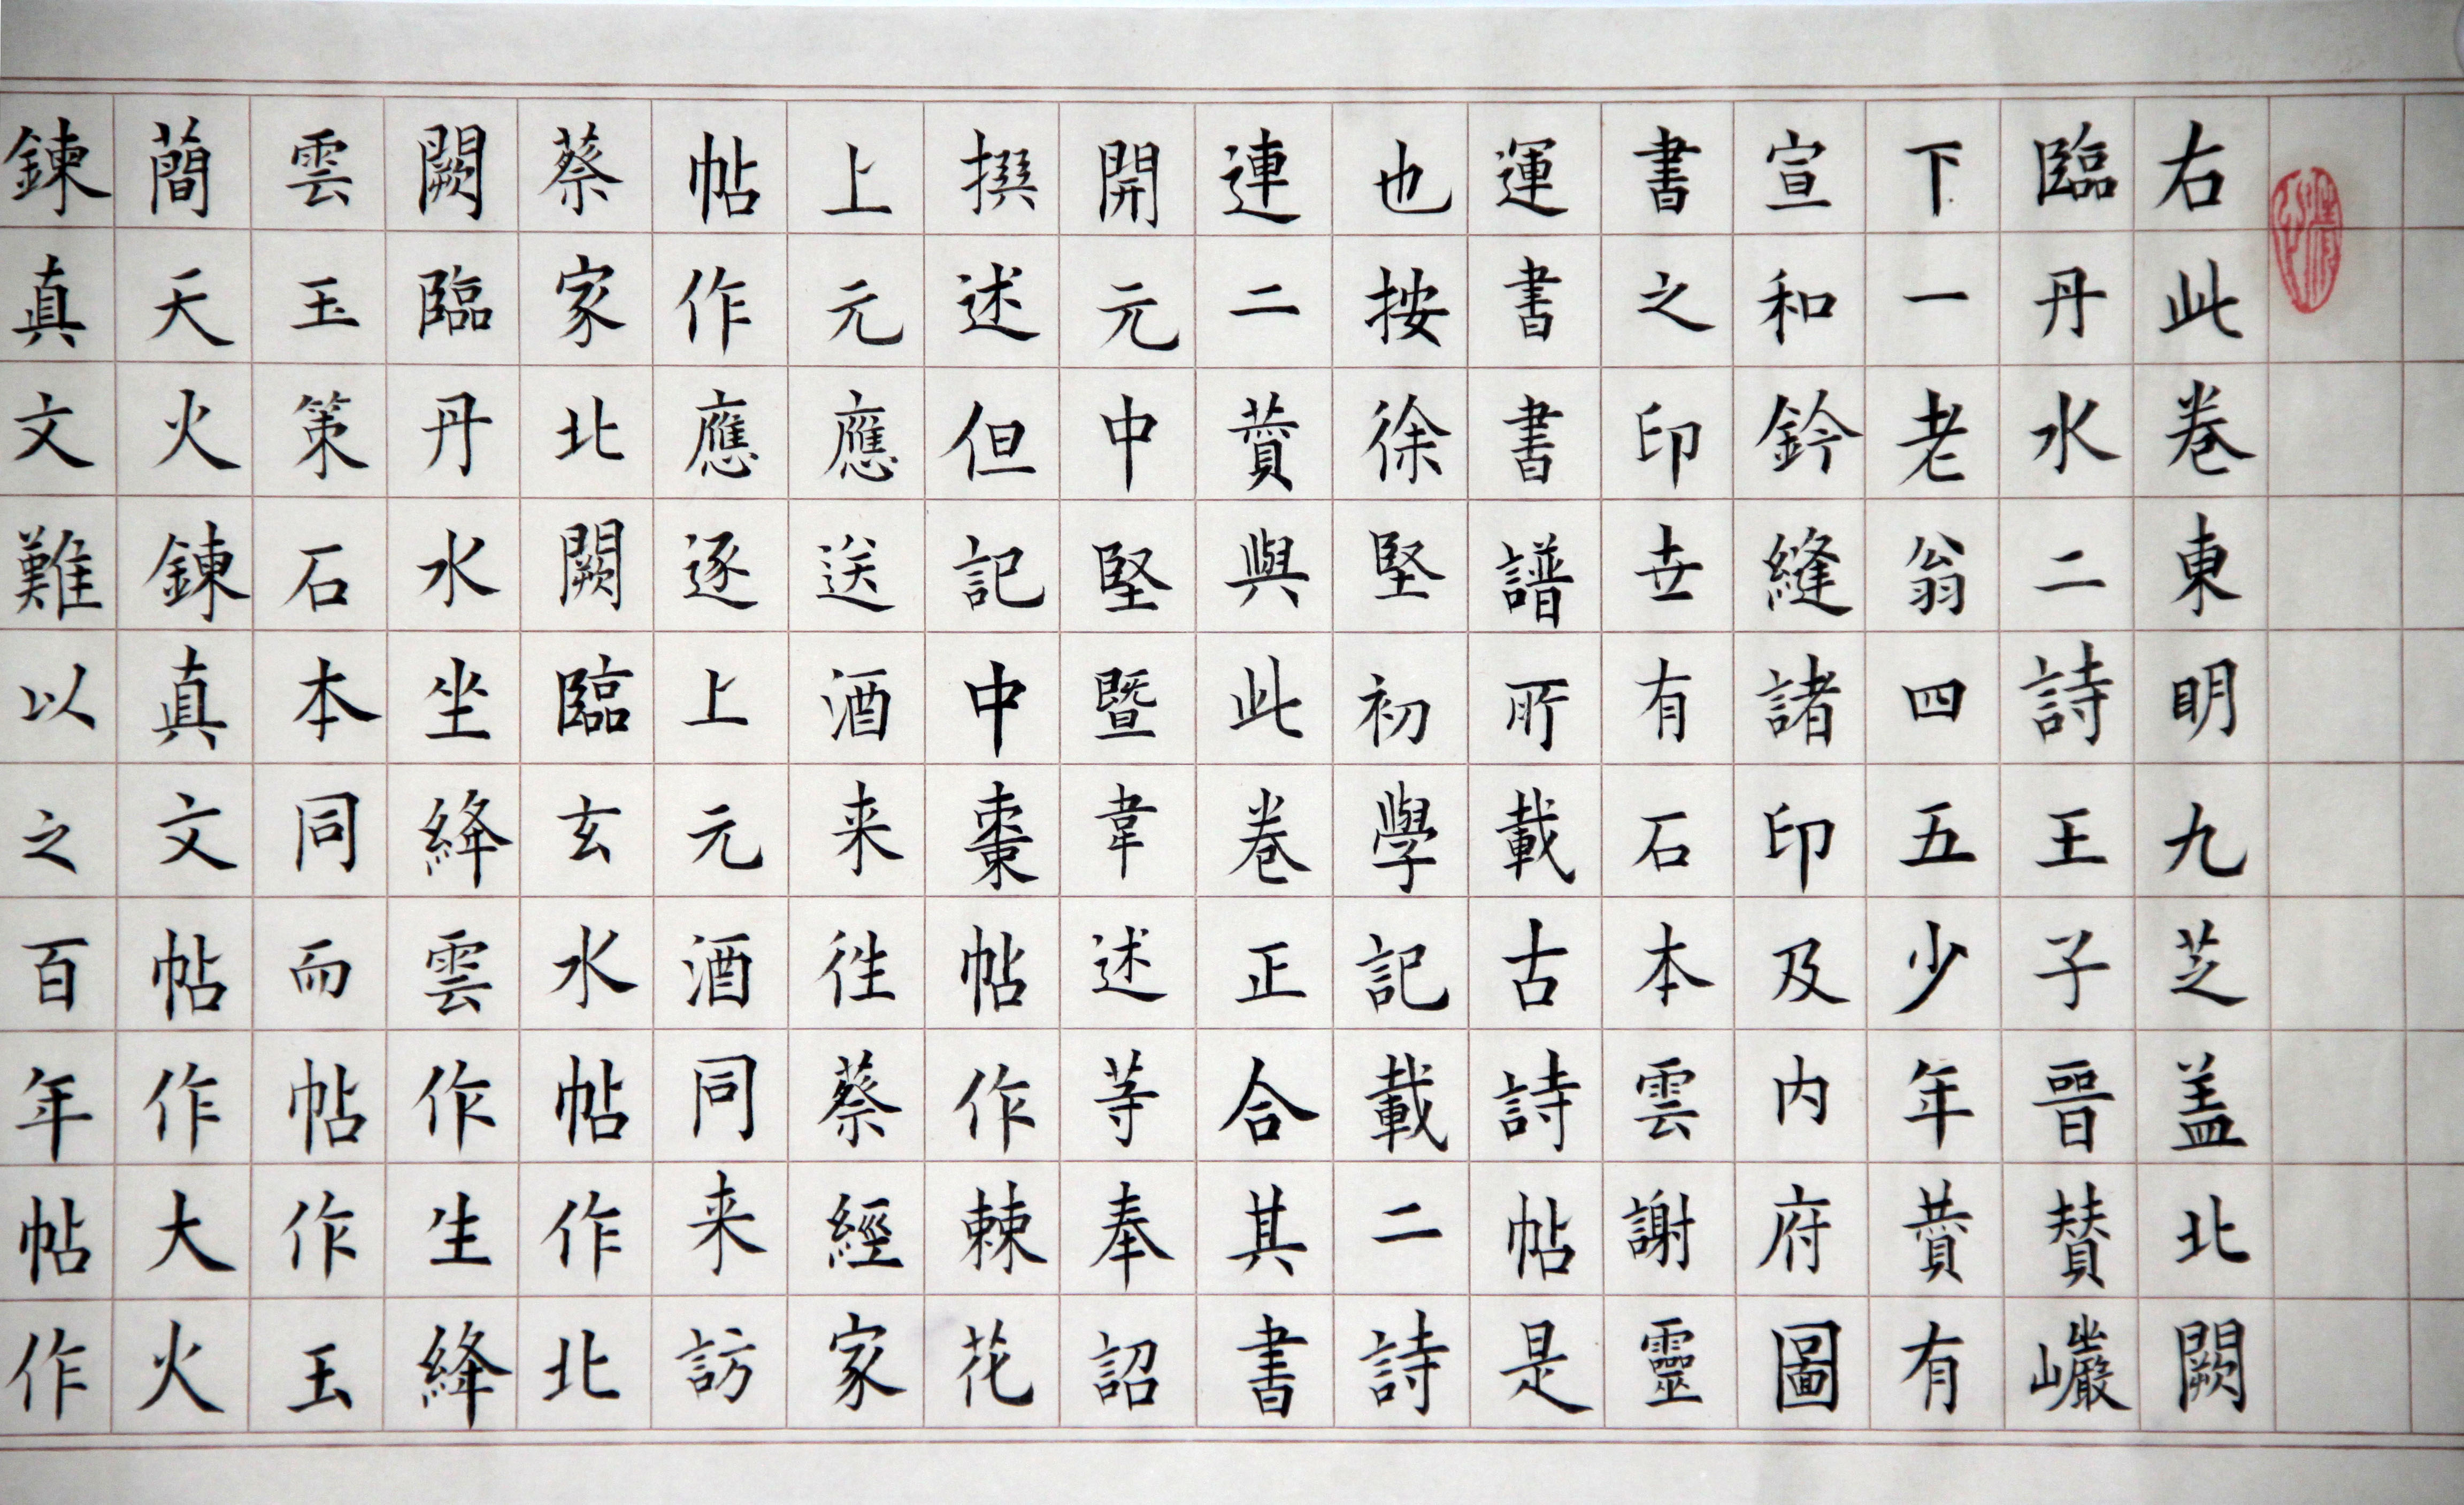 右此卷東明九芝盖北闕
臨丹水二詩王子晉賛巘
下一老翁四五少年蕒有
宣和鈐縫諸印及内府圖
書之印世有石本雲謝靈
運書書譜所載古詩帖是
也按徐堅初學記載二詩
連二蕒與此卷正合其書
開元中堅暨韋述等奉詔
撰述但記中棗帖作棘花
上元應送酒来往蔡經家
帖作應逐上元酒同来訪
蔡家北闕臨玄水帖作北
闕臨丹水坐絳雲作生絳
雲玉策石本同而帖作玉
蕑天火鍊真文帖作大火
鍊真文難以之百年帖作